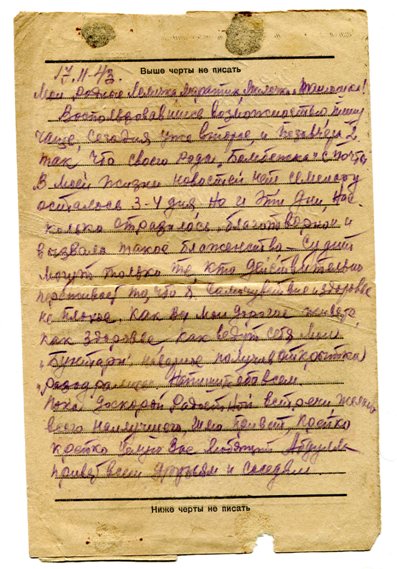 17.11.43.
Выше черты не писать
Мои родные
Воспользовавшись возможностью пишу
чаще, сегодня уже второе и позавчера 2
так, что своего рода "Бомбежка" с почты
В моей жизни новостей нет
осталось 3-4 дня Но и эти дни нас
колько отразилось, благотворное и
вызвала такое блаженство - судить
могут только те кто действительно
переживает то, что я. Самочувствие и здоровье
не плохое как вы мои дорогие живете
как здоровье, как ведут себя мои
наверное получив открытки
обо всем
Пока до скорой радостной встречи желаю
всего наилучшего. Мой привет, крепко
крепко целую Вас любящий Абдулла
привет всем друзьям и соседям.
Ниже черты не писать